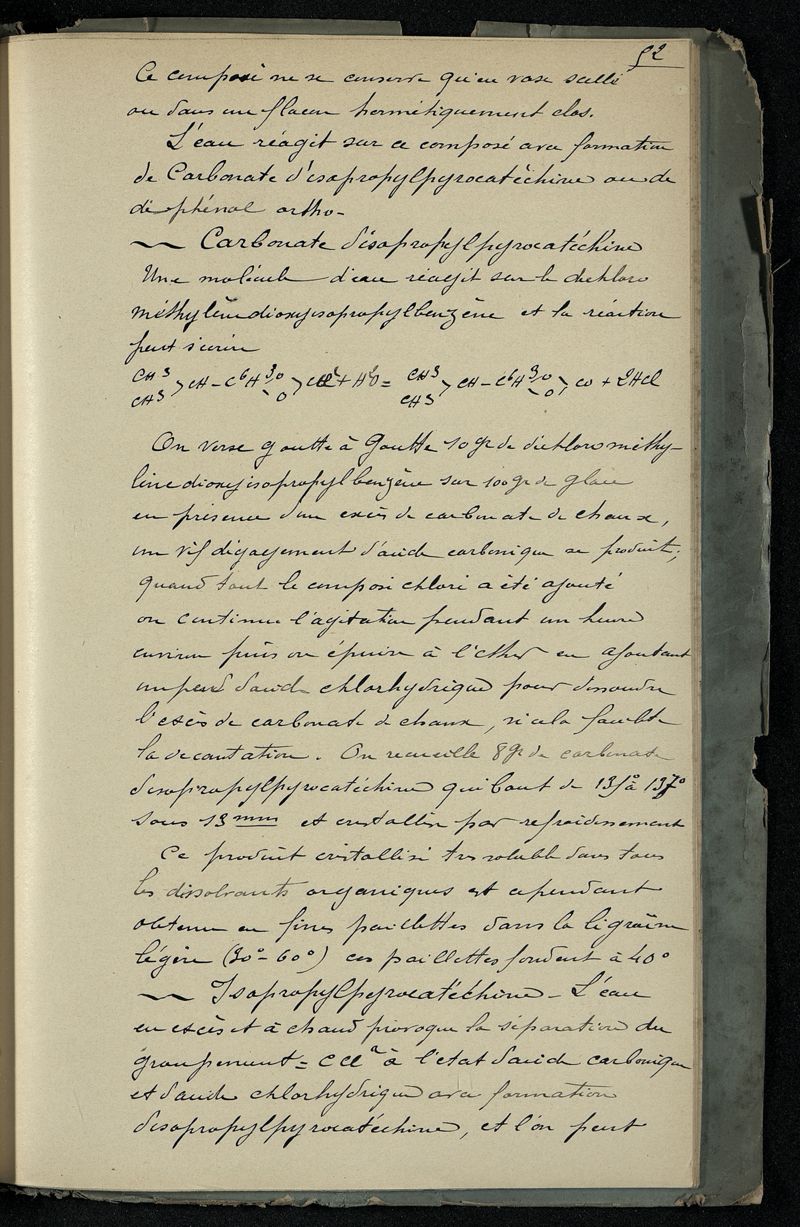 52
Ce composé ne se conserve qu'en vase scellé
ou dans un flacon hermétiquement clos.
L'eau réagit sur ce composé avec formation
de Carbonate d'isopropylpyrocatéchine ou de
di-phénol ortho-
~ Carbonate d'isopropylpyrocatéchine
Une molécule d'eau réagit sur le dichloro
méthylènedioxyisopropylbenzène et la réaction
peut s'écrire
CH³ CH³ > CH - C⁶H³ <O O> CCl² + H²O = CH³ CH³ > CH - C⁶H³ <O O> CO + 2HCl
On verse goutte à Goutte 10 gr de dichlorométhy-
lènedioxyisopropylbenzène sur 100 gr de glace
en présence d'un excès de carbonate de chaux,
un vif dégagement d'acide carbonique se produit;
quand tout le composé chloré a été ajouté
on continue l'agitation pendant un heure
environ puis on épuise à l'ether en ajoutant
un peu d'acide chlorhydrique pour dissoudre
l'excès de carbonate de chaux, si cela facilite
la decantation. On recueille 8 gr de carbonate
d'isopropylpyrocatéchine qui bout de 135° à 137°
sous 13 mm et cristallise par refroidissement
Ce produit cristallisé très soluble dans tous
les dissolvants organiques est cependant
obtenu en fines paillettes dans la ligroïne
légère (30° - 60°) ces paillettes fondent à 40°
~ Isopropylpyrocatéchine - L'eau
en excès et à chaud provoque la séparation du
groupement = CCl² à l'état d'acide carbonique
et d'acide chlorhydrique avec formation
d'isopropylpyrocatéchine, et l'on peut